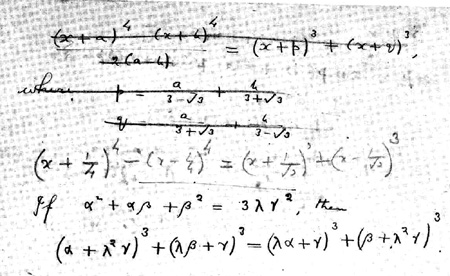 (x + a)^4 - (x + b)^4 / 2(a - b) = (x + p)^3 + (x + q)^3,
where p = a/(3-√3) + b/(3+√3)
q = a/(3+√3) + b/(3-√3)
(x + 1/4)^4 - (x - 1/4)^4 = (x + )^3 + (x - )^3
If α^2 + αβ + β^2 = 3λγ^2, then
(α + λ^2 γ)^3 + (λβ + γ)^3 = (λα + γ)^3 + (β + λ^2 γ)^3